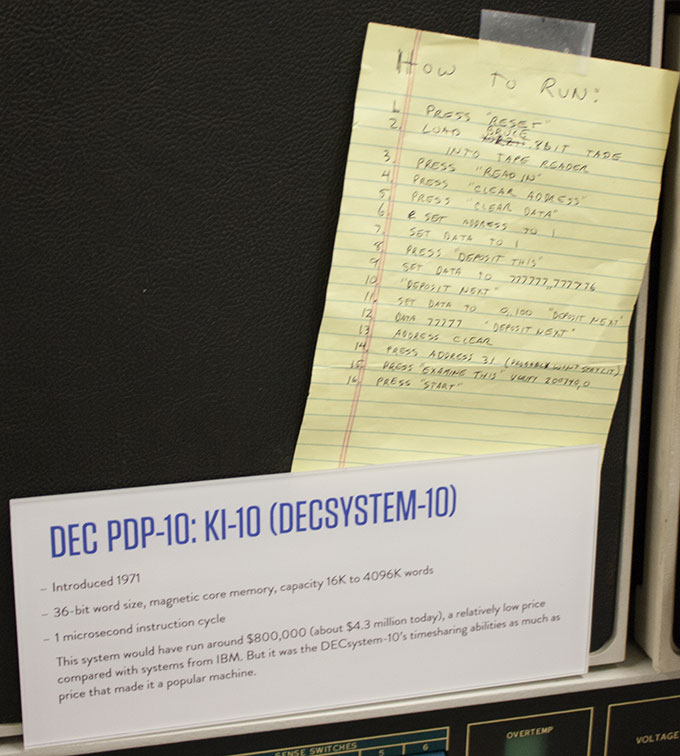 HOW TO RUN:
1. PRESS "RESET"
2. LOAD BRUCE 8BIT TAPE
INTO TAPE READER
3. PRESS "READ IN"
4. PRESS "CLEAR ADDRESS"
5. PRESS "CLEAR DATA"
6. SET ADDRESS TO 1
7. SET DATA TO 1
8. PRESS "DEPOSIT THIS"
9. SET DATA TO 777777,,777776
10. "DEPOSIT NEXT"
11. SET DATA TO 0,,100 "DEPOSIT NEXT"
12. DATA 77777 "DEPOSIT NEXT"
13. ADDRESS CLEAR
14. PRESS ADDRESS 31 (PROBABLY WON'T STAY LIT)
15. PRESS "EXAMINE THIS" VERIFY
16. PRESS "START"
DEC PDP-10: KI-10 (DECSYSTEM-10)
– Introduced 1971
– 36-bit word size, magnetic core memory, capacity 16K to 4096K words
– 1 microsecond instruction cycle
This system would have run around $800,000 (about $4.3 million today), a relatively low price
compared with systems from IBM. But it was the DECsystem-10's timesharing abilities as much as
price that made it a popular machine.
SENSE SWITCHES
5 6
OVERTEMP
VOLTAGE